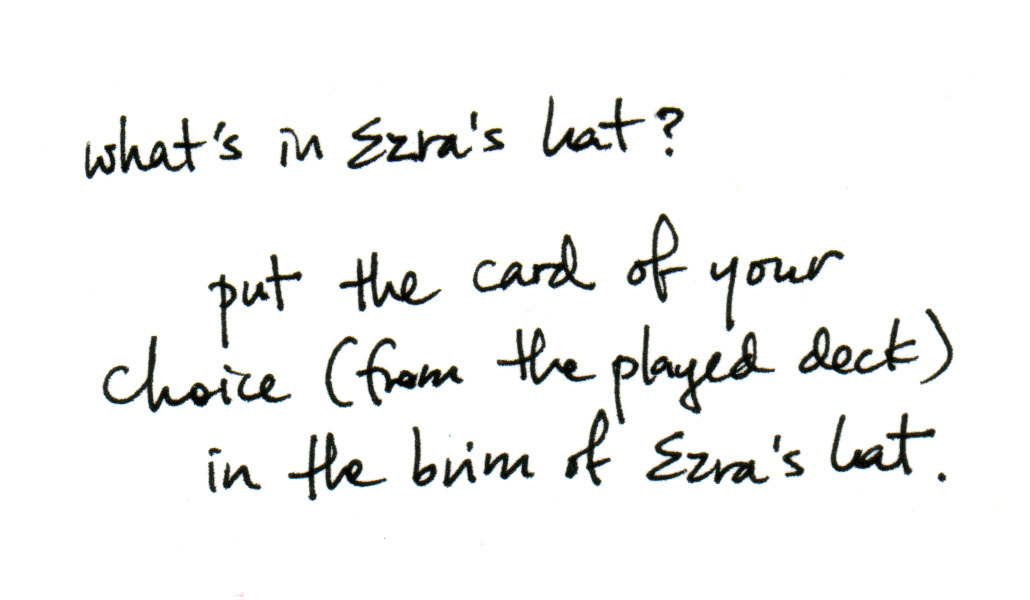 what's in Ezra's hat?
put the card of your
choice (from the played deck)
in the brim of Ezra's hat.